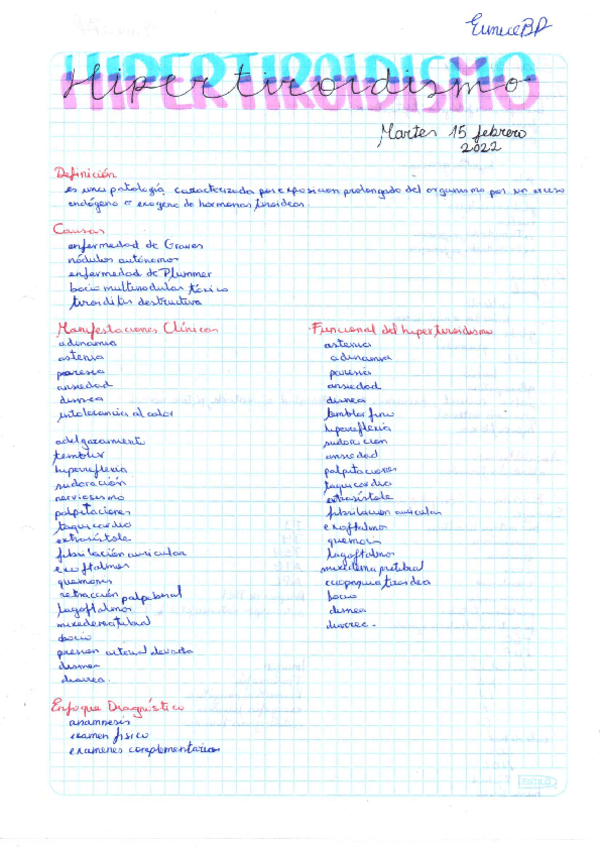 EuniceBP
HIPERTIROIDISMO
Hipertiroidismo
Martes 15 febrero
2022
Definición
es una patología caracterizada por exposicion prolongado del organismo por un exceso
endógeno o exogeno de hormonas tiroideas.
Causas
enfermedad de Graves
nódulos autónomos
enfermedad de Plummer
bocio multinodular tóxico
tiroiditis destructiva
Manifestaciones Clínicas
adinamia
astenia
paresia
ansiedad
disnea
intolerancia al calor
adelgazamiento
temblor
hiperreflexia
sudoración
nerviosismo
palpitaciones
taquicardia
extrasístole
fibrilación auricular
exoftalmos
quemosis
retracción palpebral
lagoftalmos
bocio
presion arterial elevada
disnea
diarrea.
Funcional del hipertiroidismo
astenia
adinamia
paresia
ansiedad
disnea
temblor fino
hiperreflexia
sudoracion
ansiedad
palpitaciones
taquicardia
extrasístole
fibrilacion auricular
exoftalmos
quemosis
lagoftalmos
mixedema pretibial
tiroidea
bocio
disnea
diarrea.
Enfoque Diagnóstico
anamnesis
examen fisico
examenes complementarios